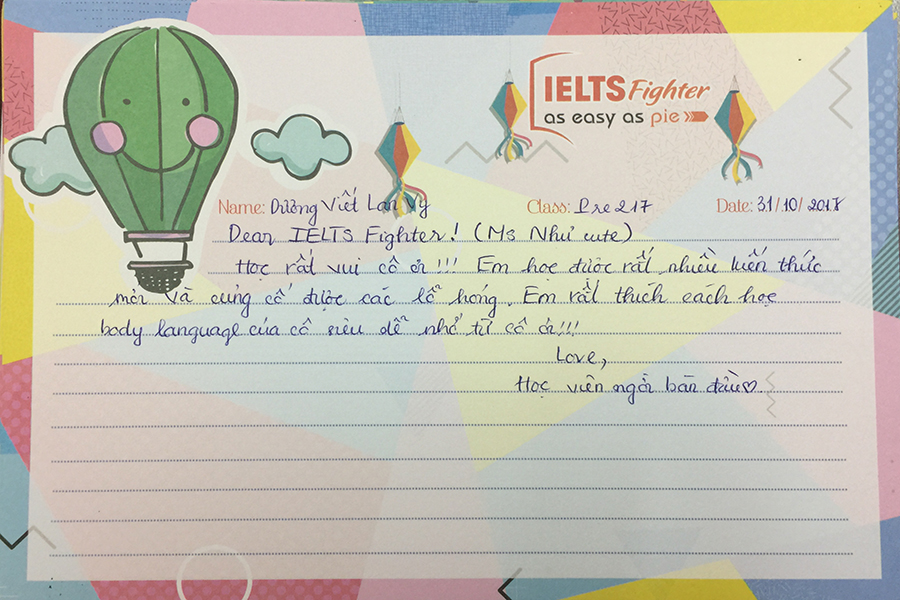 IELTS Fighter
as easy as pie
Name: Dương Viết Lan Vy Class: Pre 217 Date: 31/10/2018
Dear IELTS Fighter! (Ms Như cute)
Học rất vui cô ơi!!! Em học được rất nhiều kiến thức
mới và củng cố được các lỗ hổng. Em rất thích cách học
body language của cô siêu dễ nhớ từ cô ơi!!!
Love,
Học viên ngồi bàn đầu♡